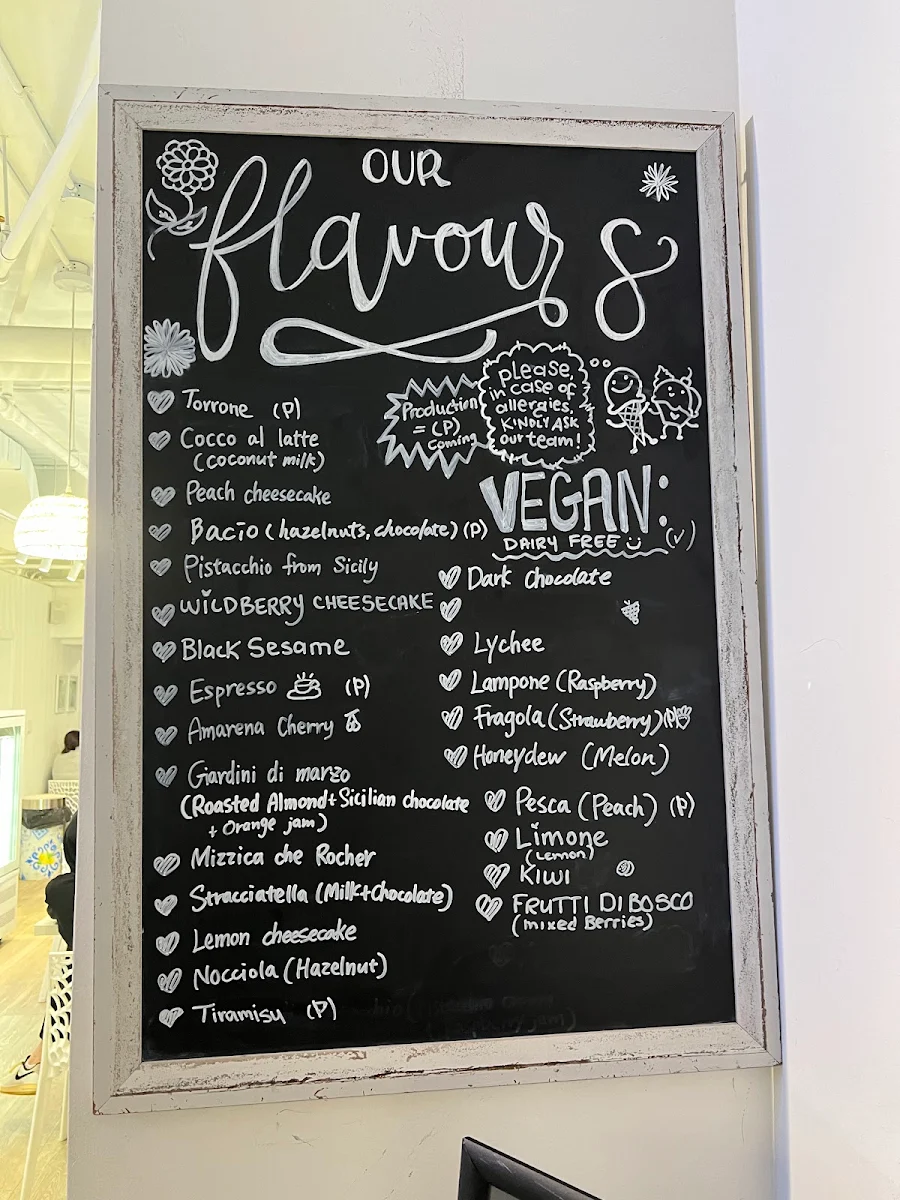 OUR
flavours
Production
= (P)
Coming
please,
in case of
allergies,
KINDLY ASK
our team!
Torrone (P)
Cocco al latte
(coconut milk)
Peach cheesecake
Bacio (hazelnuts, chocolate) (P)
Pistacchio from Sicily
WILDBERRY CHEESECAKE
Black Sesame
Espresso (P)
Amarena Cherry
Giardini di marzo
(Roasted Almond+Sicilian chocolate
+ Orange jam)
Mizzica che Rocher
Stracciatella (Milk+Chocolate)
Lemon cheesecake
Nocciola (Hazelnut)
Tiramisu (P)
VEGAN:
DAIRY FREE (v)
Dark chocolate
Lychee
Lampone (Raspberry)
Fragola (Strawberry) (P)
Honeydew (Melon)
Pesca (Peach) (P)
Limone
(Lemon)
KIWI
FRUTTI DI BOSCO
(mixed Berries)